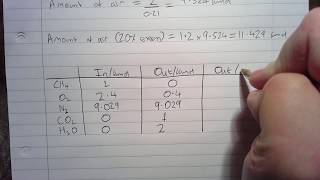 Amount of air = 2 / 0.21 = 9.524 kmol
Amount of air (20% excess) = 1.2 x 9.524 = 11.429 kmol
In/kmol Out/kmol Out/
CH4 1 0
O2 2.4 0.4
N2 9.029 9.029
CO2 0 1
H2O 0 2